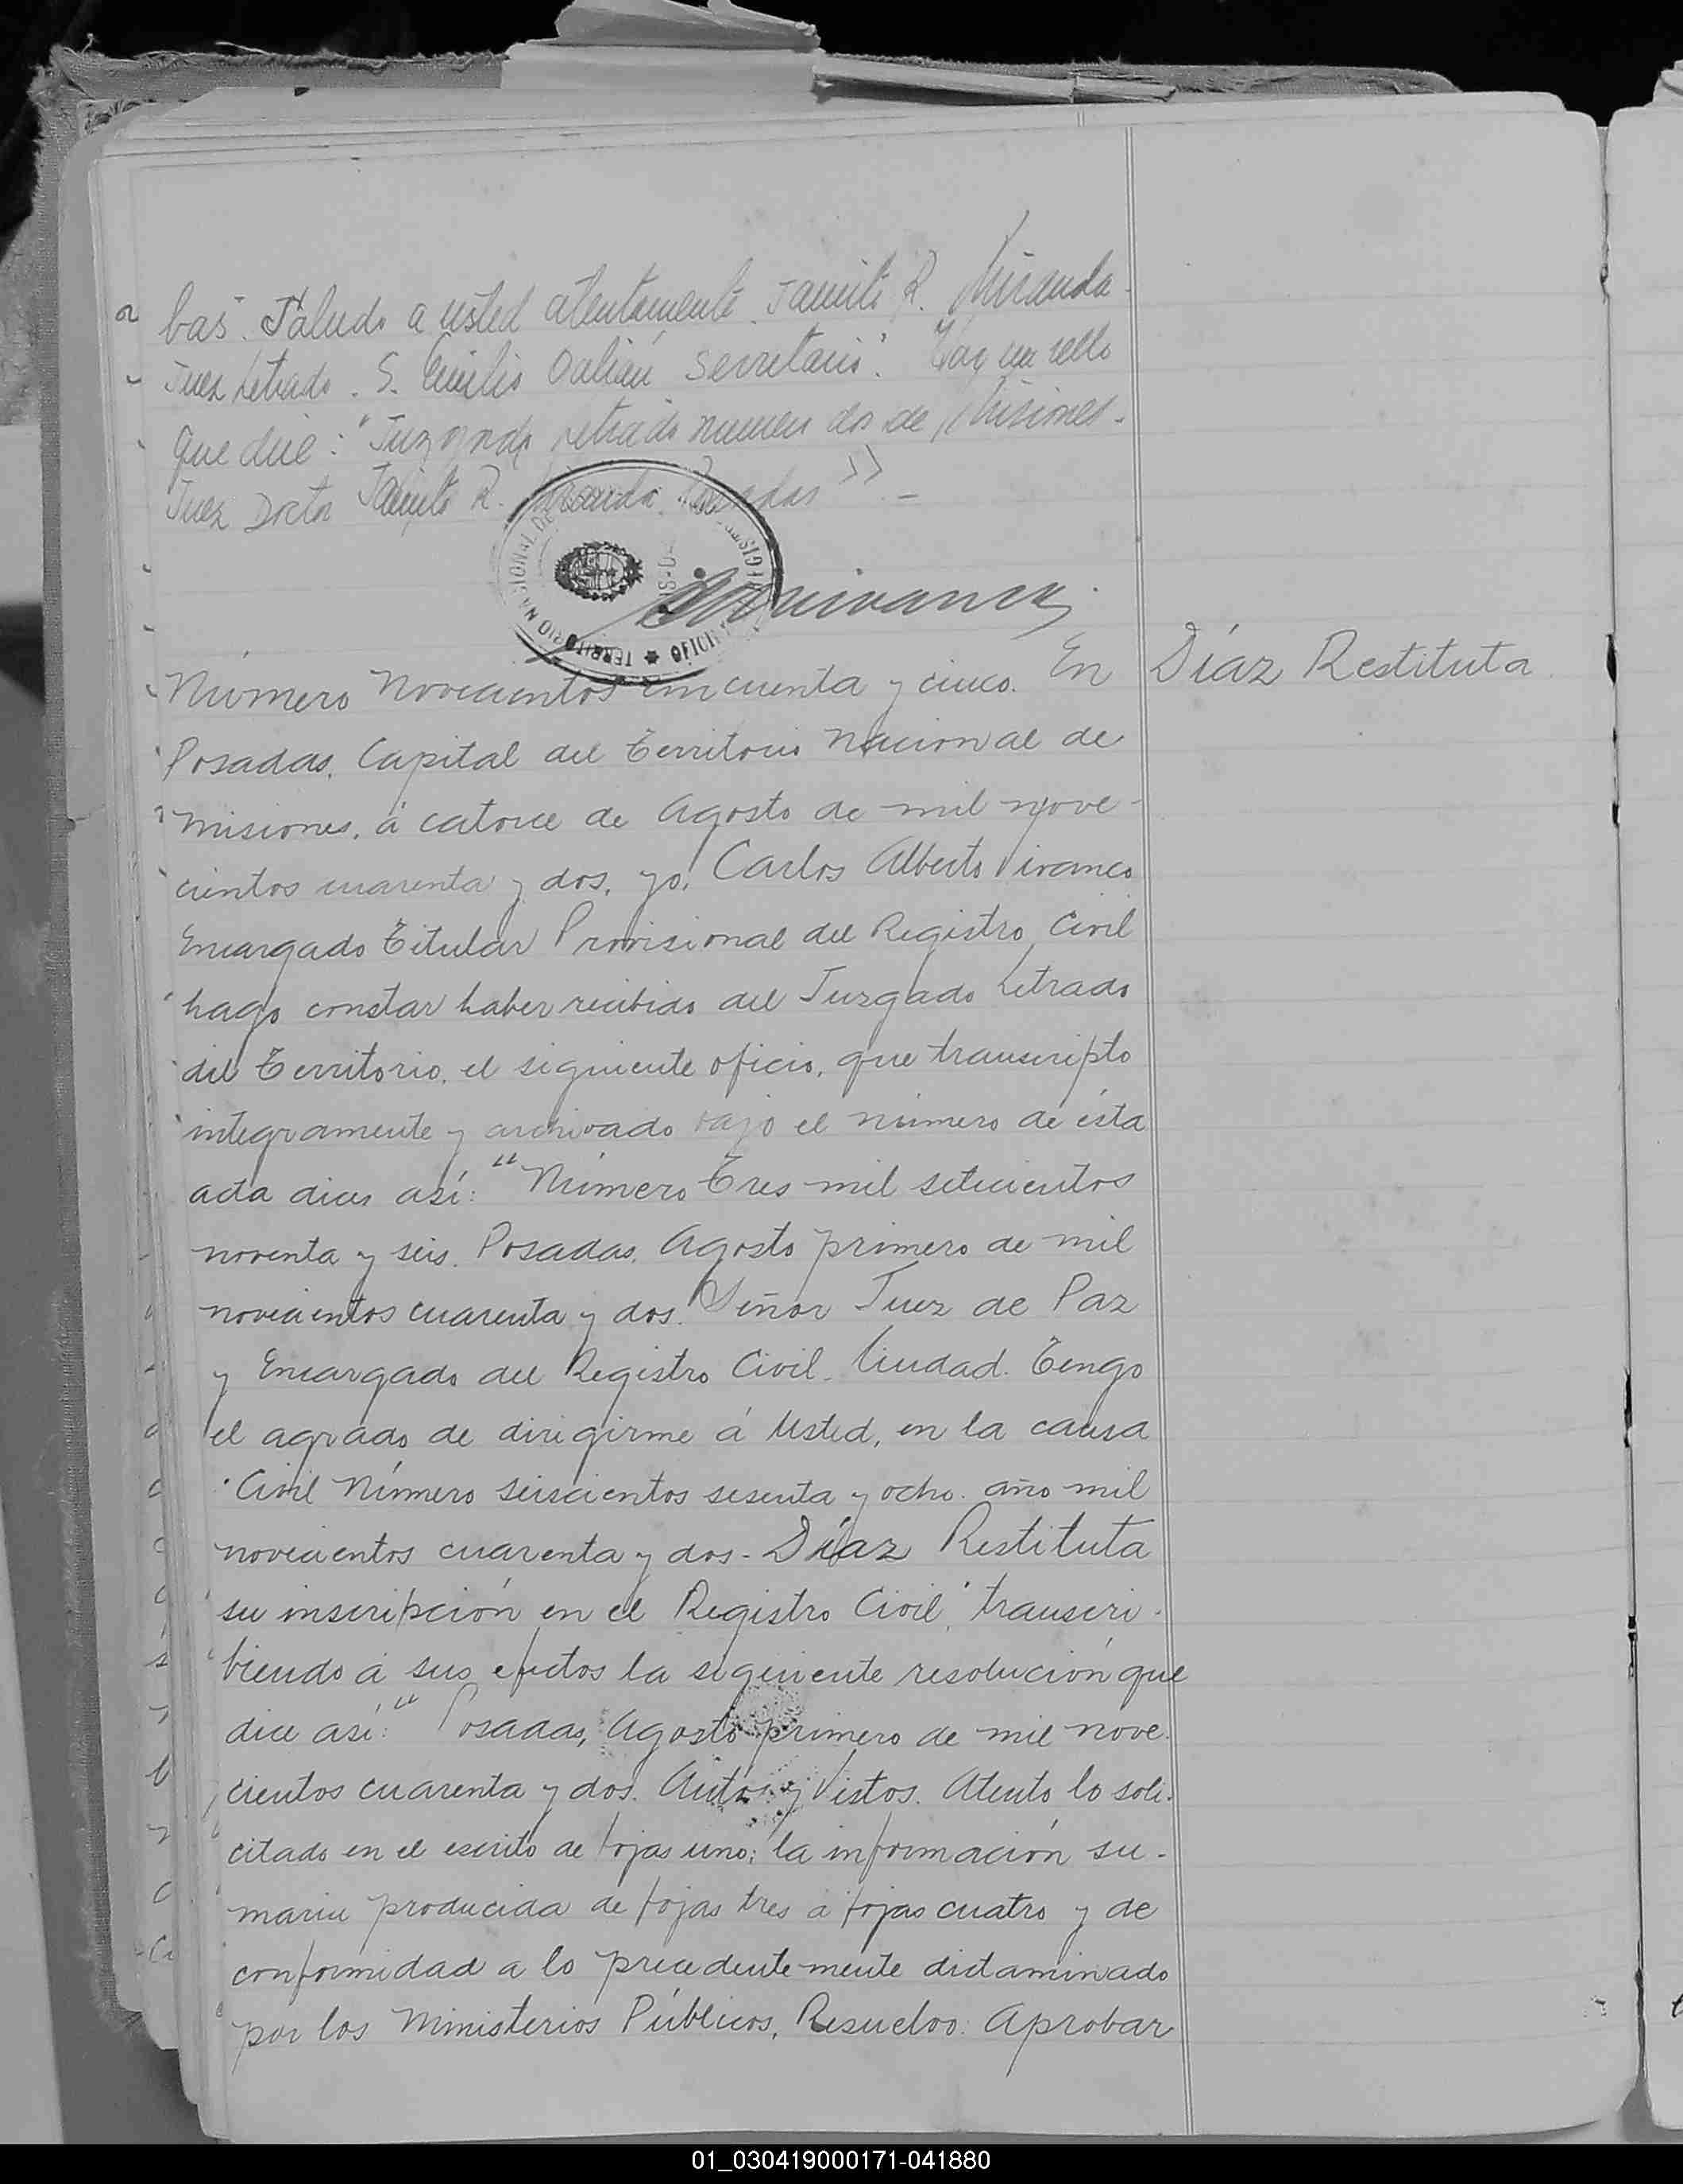 bas". Saludo a usted atentamente. Jacinto R. Miranda.
Juez Letrado. S. Emilio Dalián Secretario". Hay un sello
que dice: "Juzgado Letrado numero dos de Misiones.
Juez Doctor Jacinto R. Miranda. Posadas" -
TERRITORIO NACIONAL DE
Número Novecientos cincuenta y cinco. En
Díaz Restituta
Posadas, Capital del Territorio Nacional de
Misiones, á catorce de Agosto de mil nove-
cientos cuarenta y dos, yo, Carlos Alberto Vivanco
Encargado Titular Provisional del Registro Civil
hago constar haber recibido del Juzgado Letrado
del Territorio, el siguiente oficio, que transcripto
integramente y archivado bajo el número de ésta
acta dice así: "Número Tres mil setecientos
noventa y seis. Posadas, Agosto primero de mil
novecientos cuarenta y dos. Señor Juez de Paz
y Encargado del Registro Civil. Ciudad. Tengo
el agrado de dirigirme á Usted, en la causa
Civil Número seiscientos sesenta y ocho año mil
novecientos cuarenta y dos - Díaz Restituta
su inscripción en el Registro Civil, transcri-
biendo á sus efectos la siguiente resolución que
dice así: "Posadas, Agosto primero de mil nove-
cientos cuarenta y dos. Autos y Vistos. Atento lo soli-
citado en el escrito de fojas uno; la información su-
maria producida de fojas tres á fojas cuatro y de
conformidad a lo precedentemente dictaminado
por los Ministerios Públicos, Resuelvo: Aprobar
01_030419000171-041880